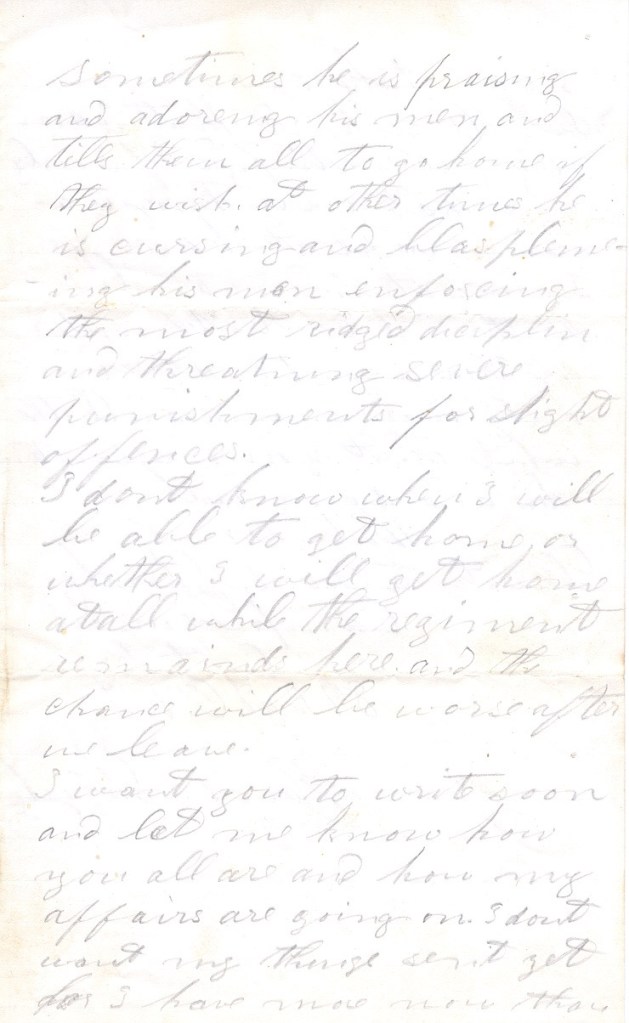 Sometimes he is praising
and adoreng his men and
tills them all to go home if
they wish. at other times he
is cursing and blaspheme-
ing his men enforcing
the most ridged diciplin
and threatning severe
punishments for slight
offences.
I dont know when I will
be able to get home or
whether I will get home
atall while the regiment
remainds here. and the
chance will be worse after
we leave.
I want you to write soon
and let me know how
you all are and how my
affairs are going on. I dont
want my things sent yet
for I have more now than